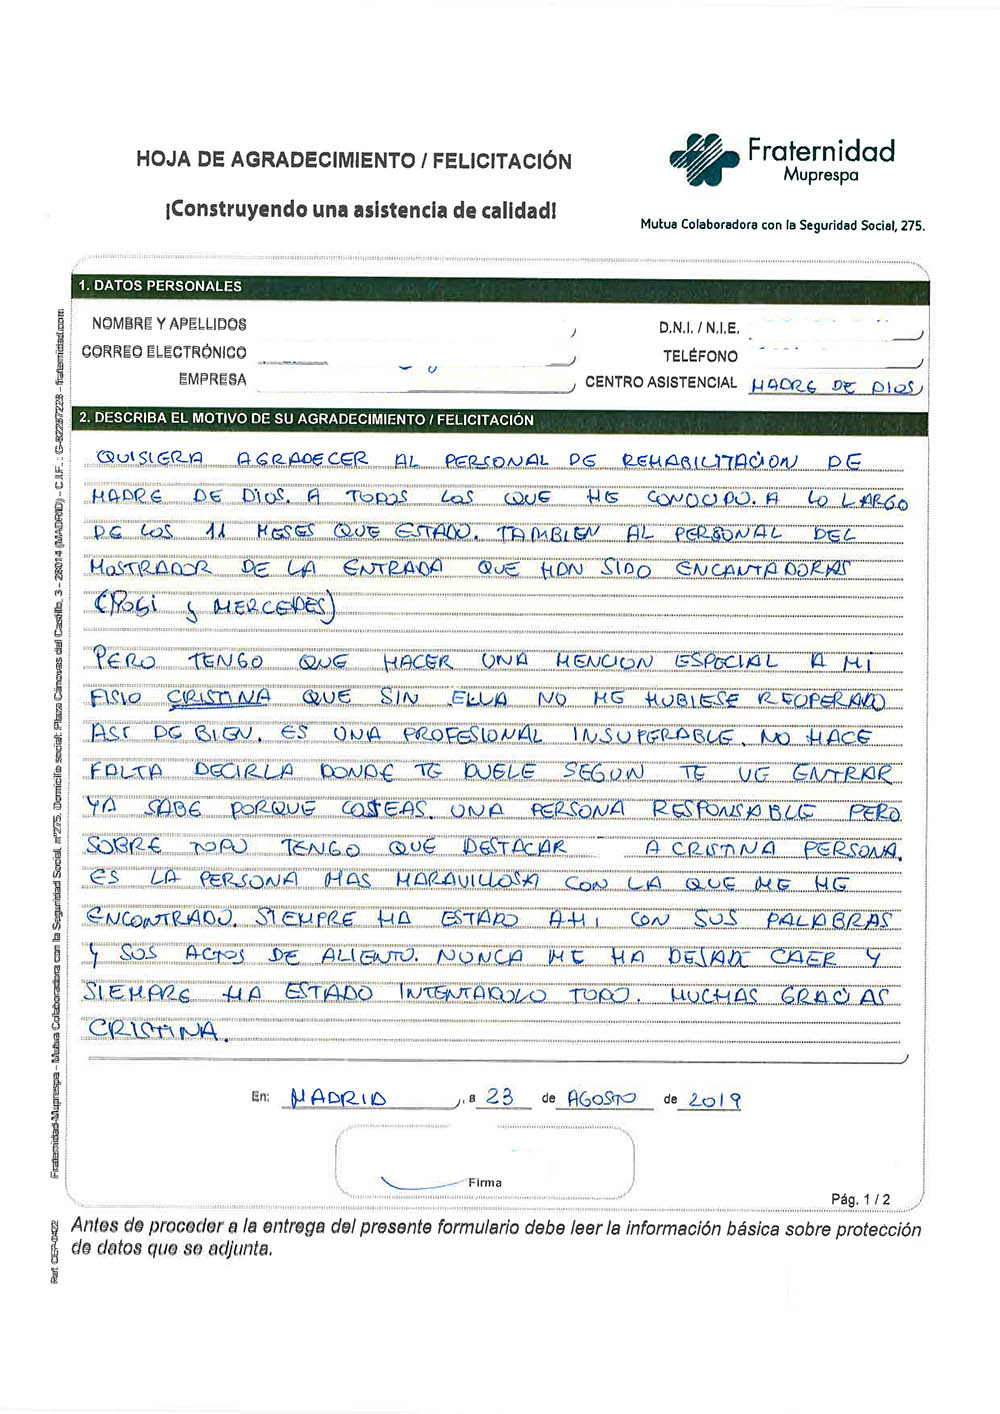 HOJA DE AGRADECIMIENTO / FELICITACIÓN
¡Construyendo una asistencia de calidad!
Fraternidad
Muprespa
Mutua Colaboradora con la Seguridad Social, 275.
1. DATOS PERSONALES
NOMBRE Y APELLIDOS
D.N.I. / N.I.E.
CORREO ELECTRÓNICO
TELÉFONO
EMPRESA
CENTRO ASISTENCIAL MADRE DE DIOS
2. DESCRIBA EL MOTIVO DE SU AGRADECIMIENTO / FELICITACIÓN
QUISIERA AGRADECER AL PERSONAL DE REHABILITACION DE
MADRE DE DIOS. A TODOS LOS QUE HE CONOCIDO. A LO LARGO
DE LOS 11 MESES QUE ESTADO. TAMBIEN AL PERSONAL DEL
MOSTRADOR DE LA ENTRADA QUE HAN SIDO ENCANTADORAS
(ROSI y MERCEDES)
PERO TENGO QUE HACER UNA MENCION ESPECIAL A MI
FISIO CRISTINA QUE SIN ELLA NO ME HUBIESE REOPERADO
ASI DE BIEN. ES UNA PROFESIONAL INSUPERABLE. NO HACE
FALTA DECIRLA DONDE TE DUELE SEGUN TE VE ENTRAR
YA SABE PORQUE COJEAS. UNA PERSONA RESPONSABLE PERO
SOBRE TODO TENGO QUE DESTACAR A CRISTINA PERSONA.
ES LA PERSONA MAS MARAVILLOSA CON LA QUE ME HE
ENCONTRADO. SIEMPRE HA ESTADO AHI CON SUS PALABRAS
Y SUS ACTOS DE ALIENTO. NUNCA ME HA DEJADO CAER Y
SIEMPRE HA ESTADO INTENTANDOLO TODO. MUCHAS GRACIAS
CRISTINA.
En: MADRID, a 23 de AGOSTO de 2019
Firma
Pág. 1 / 2
Antes de proceder a la entrega del presente formulario debe leer la información básica sobre protección
de datos que se adjunta.
Fraternidad-Muprespa - Mutua Colaboradora con la Seguridad Social, nº275. Domicilio social: Plaza Cánovas del Castillo, 3 - 28014 (MADRID) - C.I.F. : G-82287228 - fraternidad.com
Ref. CEP-042